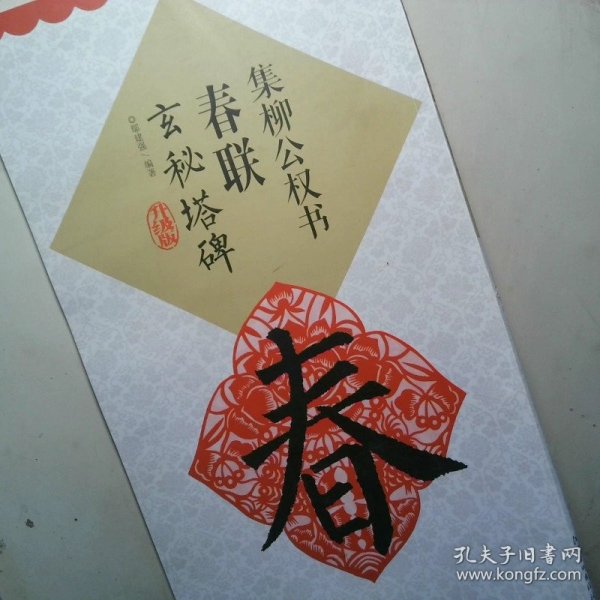 集柳公权书
春联
玄秘塔碑
升级版
编著
春
孔夫子旧书网
www.kongfz.com